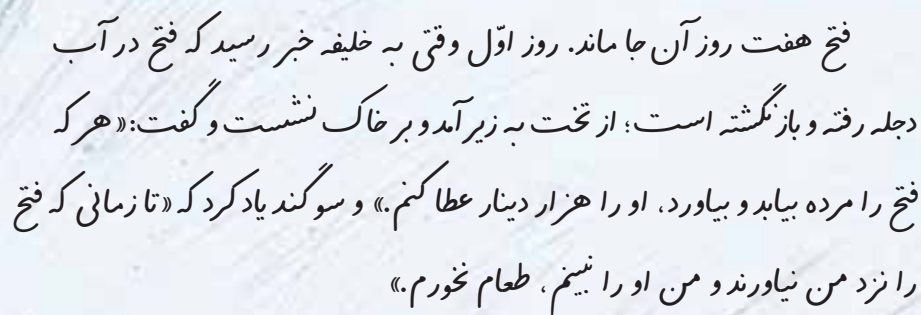 فتح هفت روز آن جا ماند. روز اوّل وقتی به خلیفه خبر رسید که فتح در آب
دجله رفته و باز نگشته است؛ از تخت به زیر آمد و بر خاک نشست و گفت:«هر که
فتح را مرده بیابد و بیاورد، او را هزار دینار عطا کنم.» و سوگند یاد کرد که «تا زمانی که فتح
را نزد من نیاورند و من او را نبینم، طعام نخورم.»